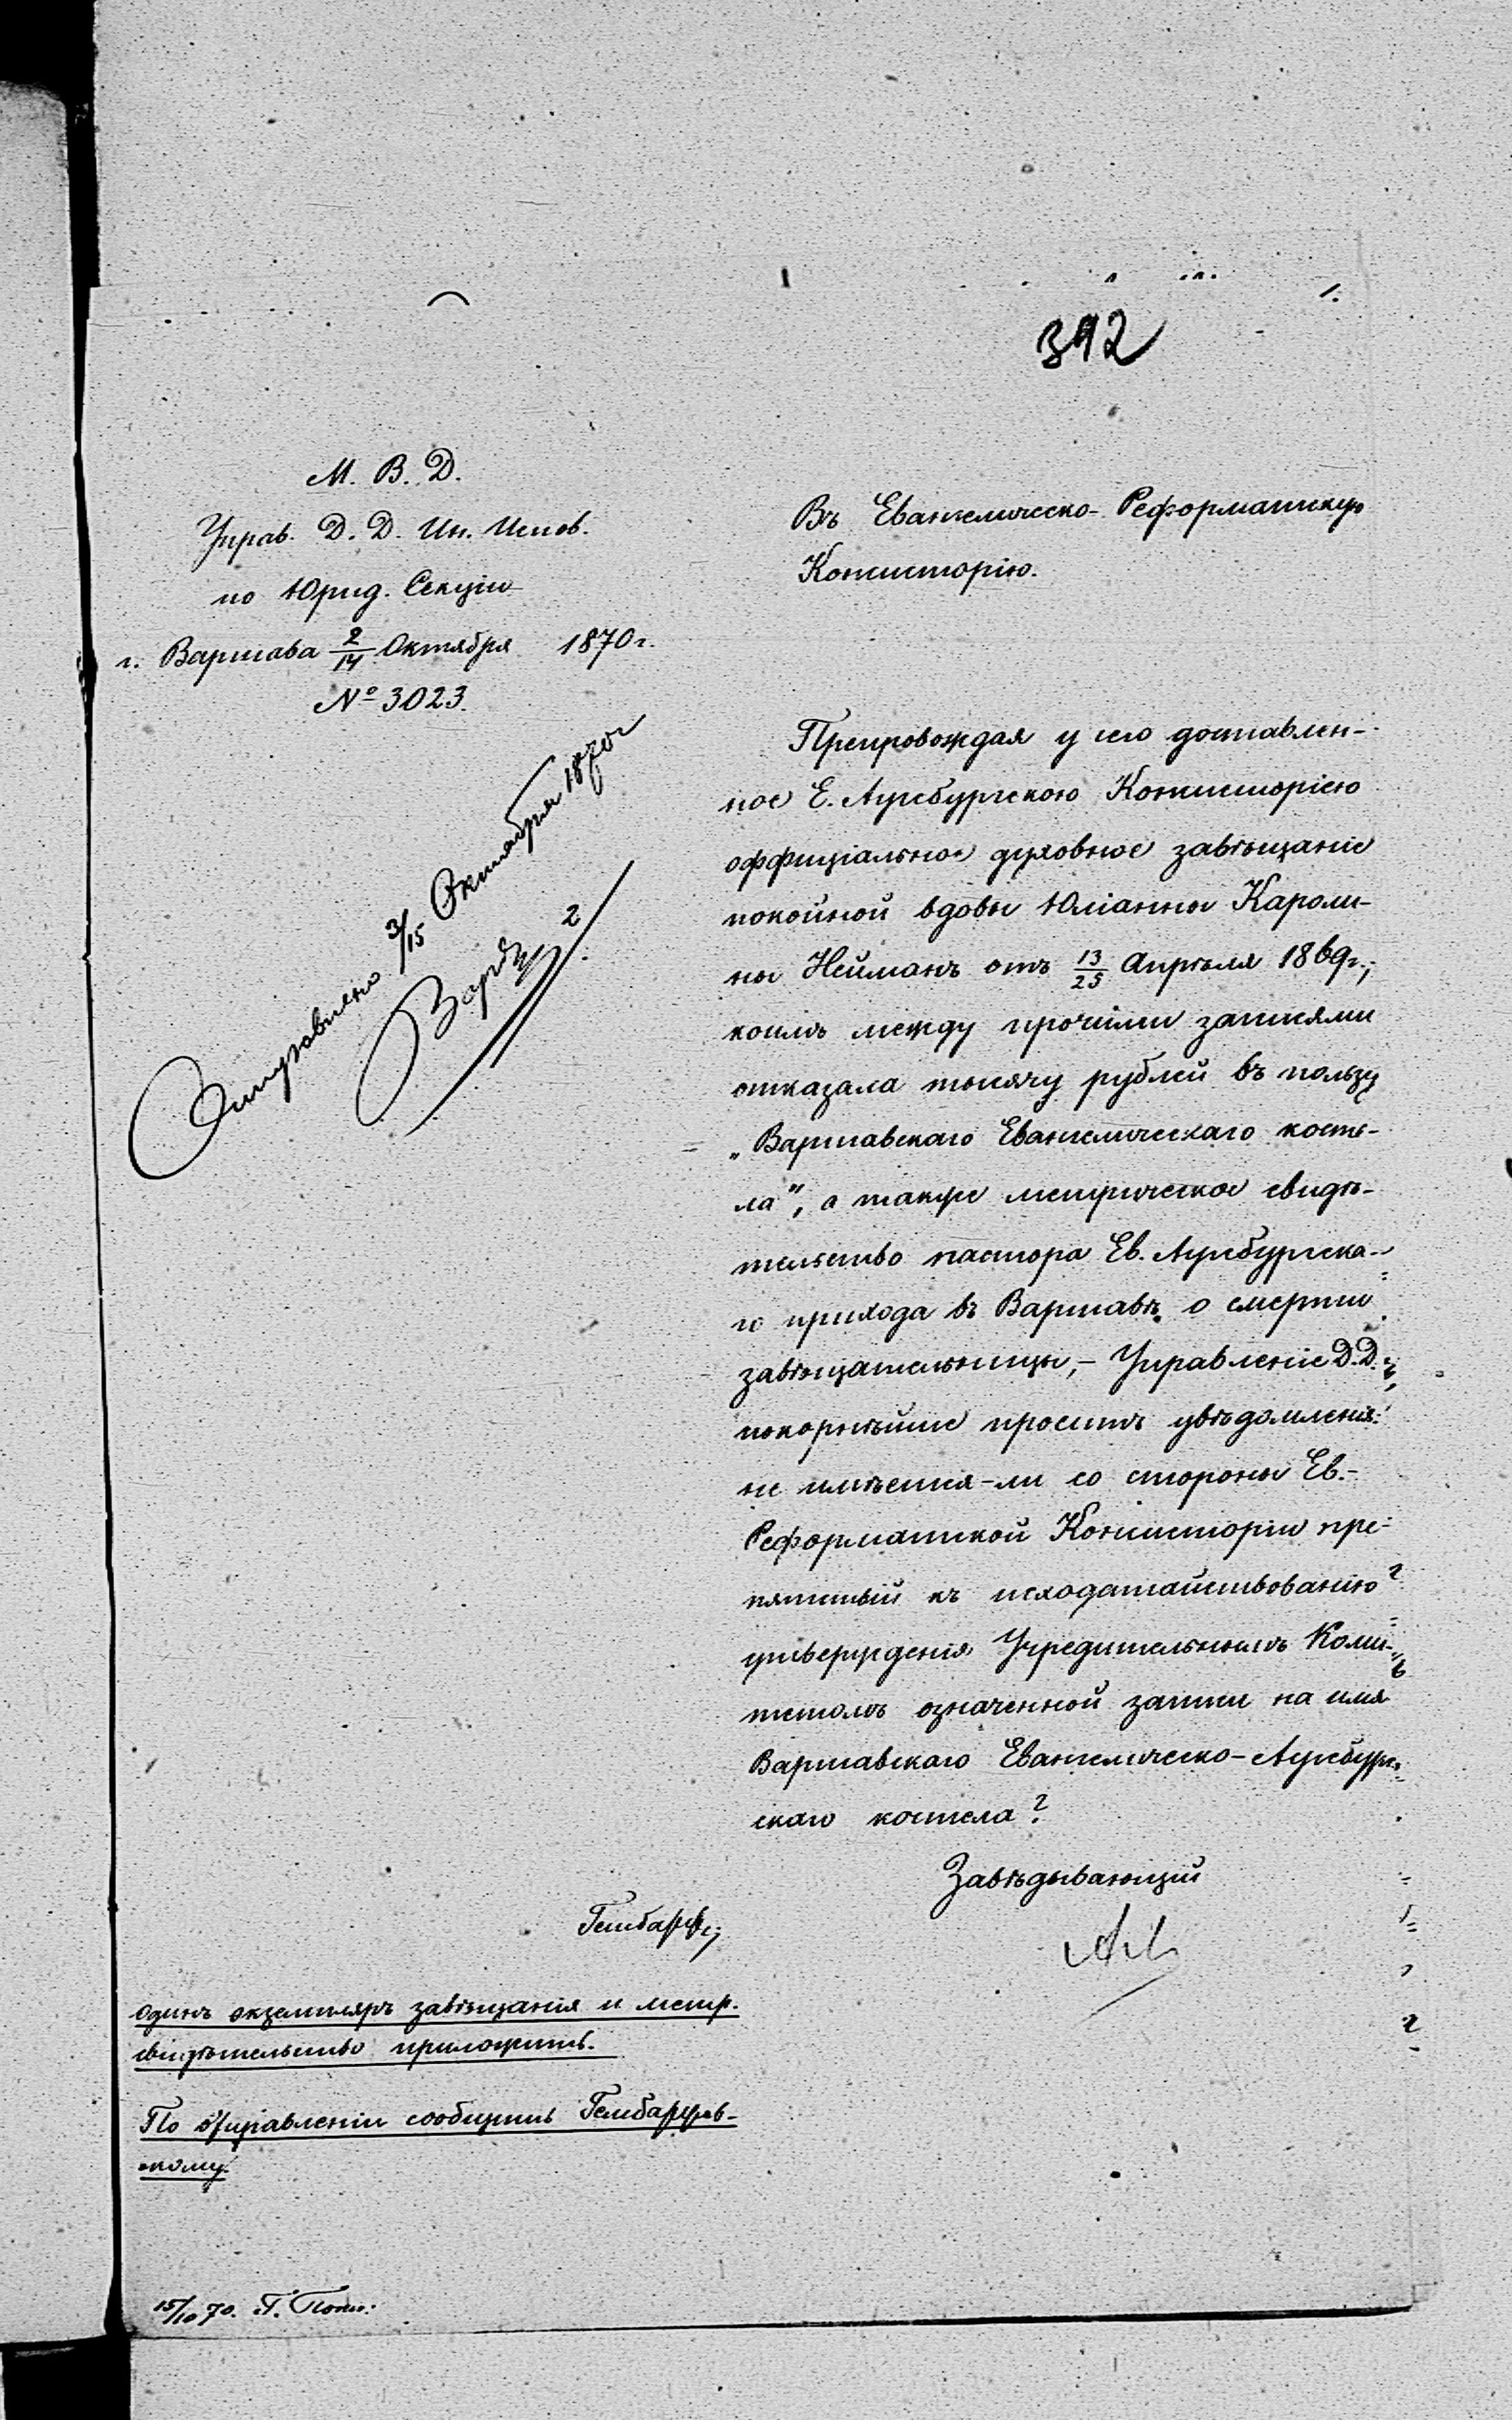 392
М. В. Д.
Управ. Д. Д. Ин. Испов.
по Юрид. Секціи
г. Варшава 2/14 Октября 1870 г.
№ 3023.
Въ Евангелическо-Реформатскую
Консисторію.
Отправлено 3/15 Октября 1870 г
Препровождая у сего доставлен-
ное Е. Аугсбургскою Консисторіею
оффиціальное духовное завѣщаніе
покойной вдовы Юліанны Кароли-
ны Нейманъ отъ 13/25 Апрѣля 1869 г.,
коимъ между прочими записями
отказала тысячу рублей въ пользу
„Варшавскаго Евангелическаго косте-
ла", а также метрическое свидѣ-
тельство пастора Ев. Аугсбургска-
го прихода въ Варшавѣ о смерти
завѣщательницы, – Управленіе Д.Д.
покорнѣйше проситъ увѣдомленія:
не имѣется-ли со стороны Ев.-
Реформатской Консисторіи пре-
пятствій къ исходатайствованію
утвержденія Учредительнымъ Коми-
тетомъ означенной записи на имя
Варшавскаго Евангелическо-Аугсбург-
скаго костела?
Завѣдывающій
одинъ экземпляръ завѣщанія и метр.
свидѣтельство приложить.
По отправленіи сообщить
15/10 70.